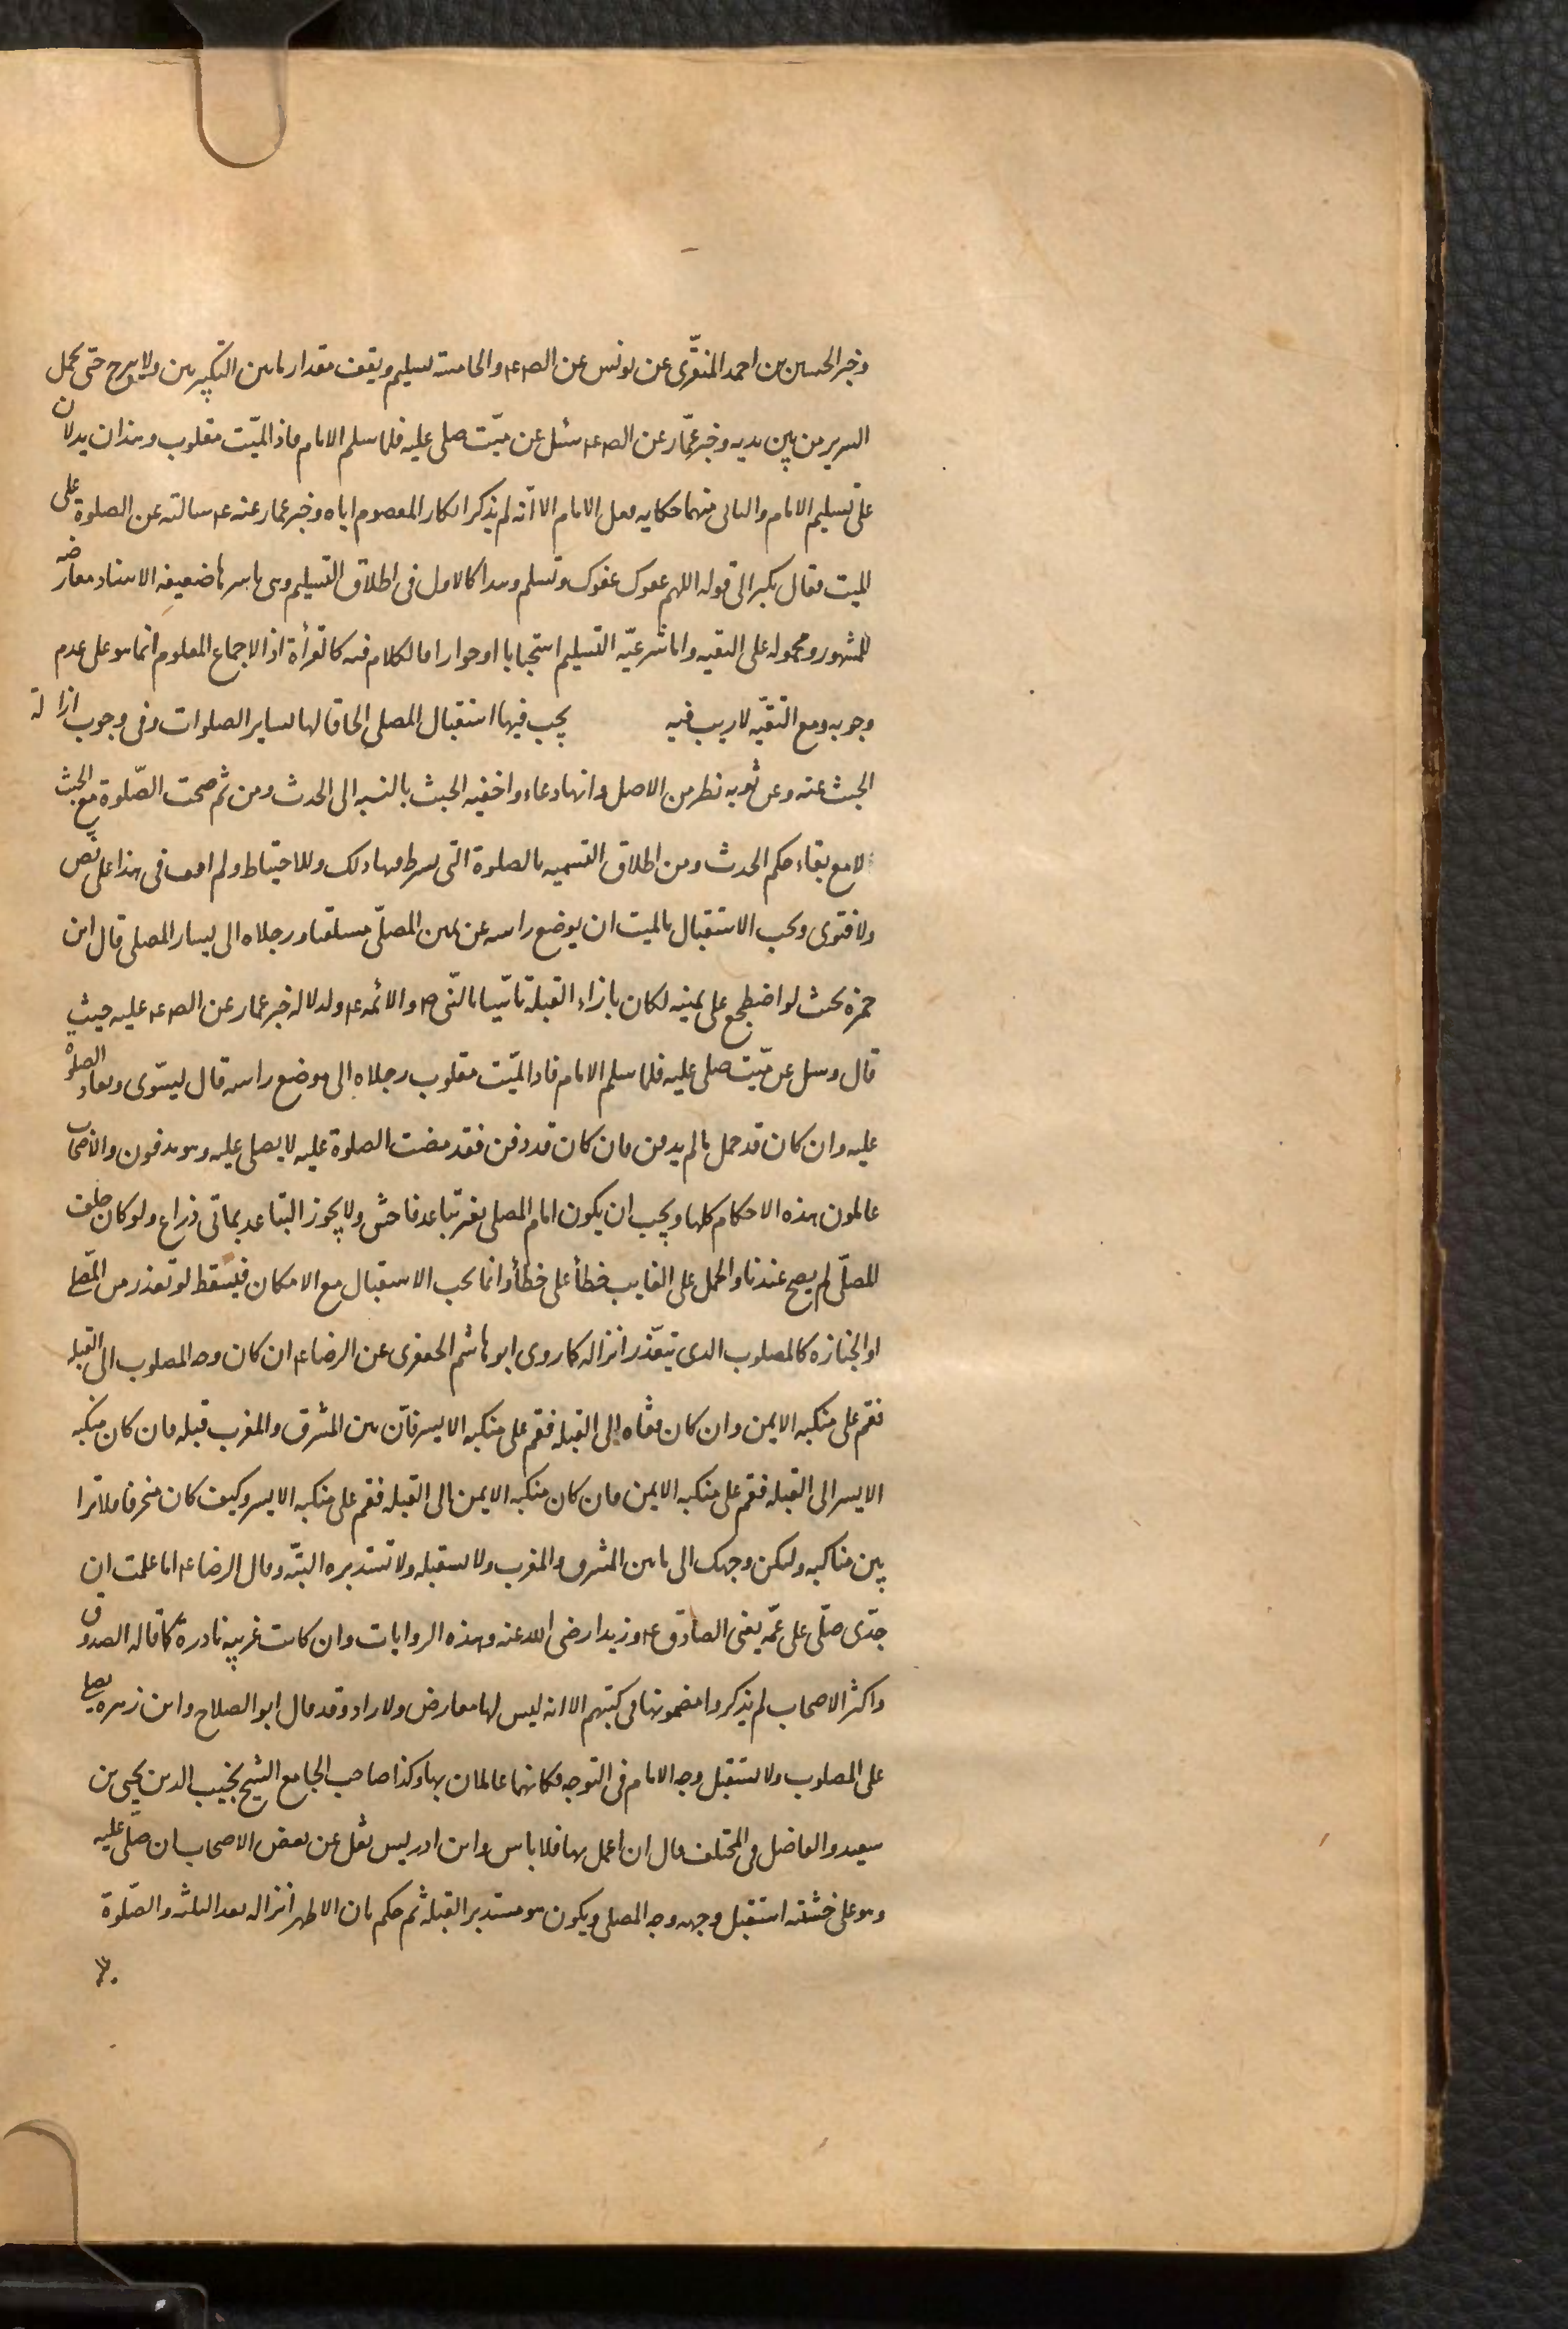 وخبر الحسين بن احمد المنقّرى عن يونس عن الص ع والخامسة تسليم ويقف مقدار ما بين التكبيرتين ولا يبرح حتى يحمل
السرير من بين يديه وخبر عمّار عن الص ع سئل عن ميّت صلى عليه فلما سلم الامام فاذا الميّت مقلوب وهذان يدلان
على تسليم الامام والثانى منهما حكايه فعل الامام الا انّه لم يذكر انكار المعصوم اياه وخبر عمار عنه ع سالته عن الصلوة على
الميت فقال يكبر الى قوله اللهم عفوك عفوك وتسلم وهذا كالاول فى اطلاق التسليم وهى باسرها ضعيفه الاسناد معارضه
للمشهور ومحموله على التقيه واما شرعيّه التسليم استحبابا او جوازا فالكلام فيه كالقرأة اذ الاجماع المعلوم انما هو على عدم
وجوبه ومع التقيّه لا ريب فيه يجب فيها استقبال المصلى الحاقا لها بساير الصلوات وفى وجوب ازالة
الخبث عنه وعن ثوبه نظر من الاصل وانها دعاء واخفيه الخبث بالنسبه الى الحدث ومن ثم صحت الصّلوة مع الخبث
لا مع بقاء حكم الحدث ومن اطلاق التسميه بالصلوة التى يشرط فيها ذلك وللاحتياط ولم اقف فى هذا على نص
ولا فتوى ويجب الاستقبال بالميت ان يوضع راسه عن يمين المصلّى مستلقيا ورجلاه الى يسار المصلى قال ابن
حمزه بحيث لو اضطجع على يمينه لكان بازاء القبلة تاسّيا بالنّبى ص والائمه ع ولدلاله خبر عمار عن الص ع عليه حيث
قال وسئل عن ميّت صلى عليه فلما سلم الامام فاذا الميّت مقلوب رجلاه الى موضع راسه قال يسّوى ويعاد الصلوة
عليه وان كان قد حمل ما لم يدفن فان كان قد دفن فقد مضت الصلوة عليه لا يصلى عليه وهو مدفون والاصحاب
عاملون بهذه الاحكام كلها ويجب ان يكون امام المصلى بغير تباعد فاحش ولا يجوز التباعد بمأتى ذراع ولو كان خلف
المصلّى لم يصح عندنا والحمل على الغايب خطأ على خطأ وانما يجب الاستقبال مع الامكان فيسقط لو تعذر من المصّلى
او الجنازه كالمصلوب الذى يتعّذر انزاله كما روى ابو هاشم الجعفرى عن الرضا ع ان كان وجه المصلوب الى القبله
فقم على منكبه الايمن وان كان قفاه الى القبله فقم على منكبه الايسر فان بين المشرق والمغرب قبله فان كان منكبه
الايسر الى القبله فقم على منكبه الايمن فان كان منكبه الايمن الى القبله فقم على منكبه الايسر وكيف كان منحرفا فلا تزا
يلن مناكبه وليكن وجهك الى ما بين المشرق والمغرب ولا تستقبله ولا تستدبره البتّه وقال الرضا ع اما علمت ان
جدّى صلّى على عمّه يعنى الصادق ع وزيدا رضى الله عنه وهذه الروايات وان كانت غريبه نادرة كما قاله الصدوق
واكثر الاصحاب لم يذكروا مضمونها فى كتبهم الا انه ليس لها معارض ولا راد وقد قال ابو الصلاح وابن زهره يصلى
على المصلوب ولا يستقبل وجه الامام فى التوجه فكانهما عاملان بها وكذا صاحب الجامع الشيخ نجيب الدين يحيى بن
سعيد والفاضل فى المختلف قال ان عمل بها فلا باس وابن ادريس نقل عن بعض الاصحاب ان صلّى عليه
وهو على خشبته استقبل وجهه وجه المصلى ويكون هو مستدبر القبلة ثم حكم بان الاظهر انزاله بعد الثلثه والصّلوة